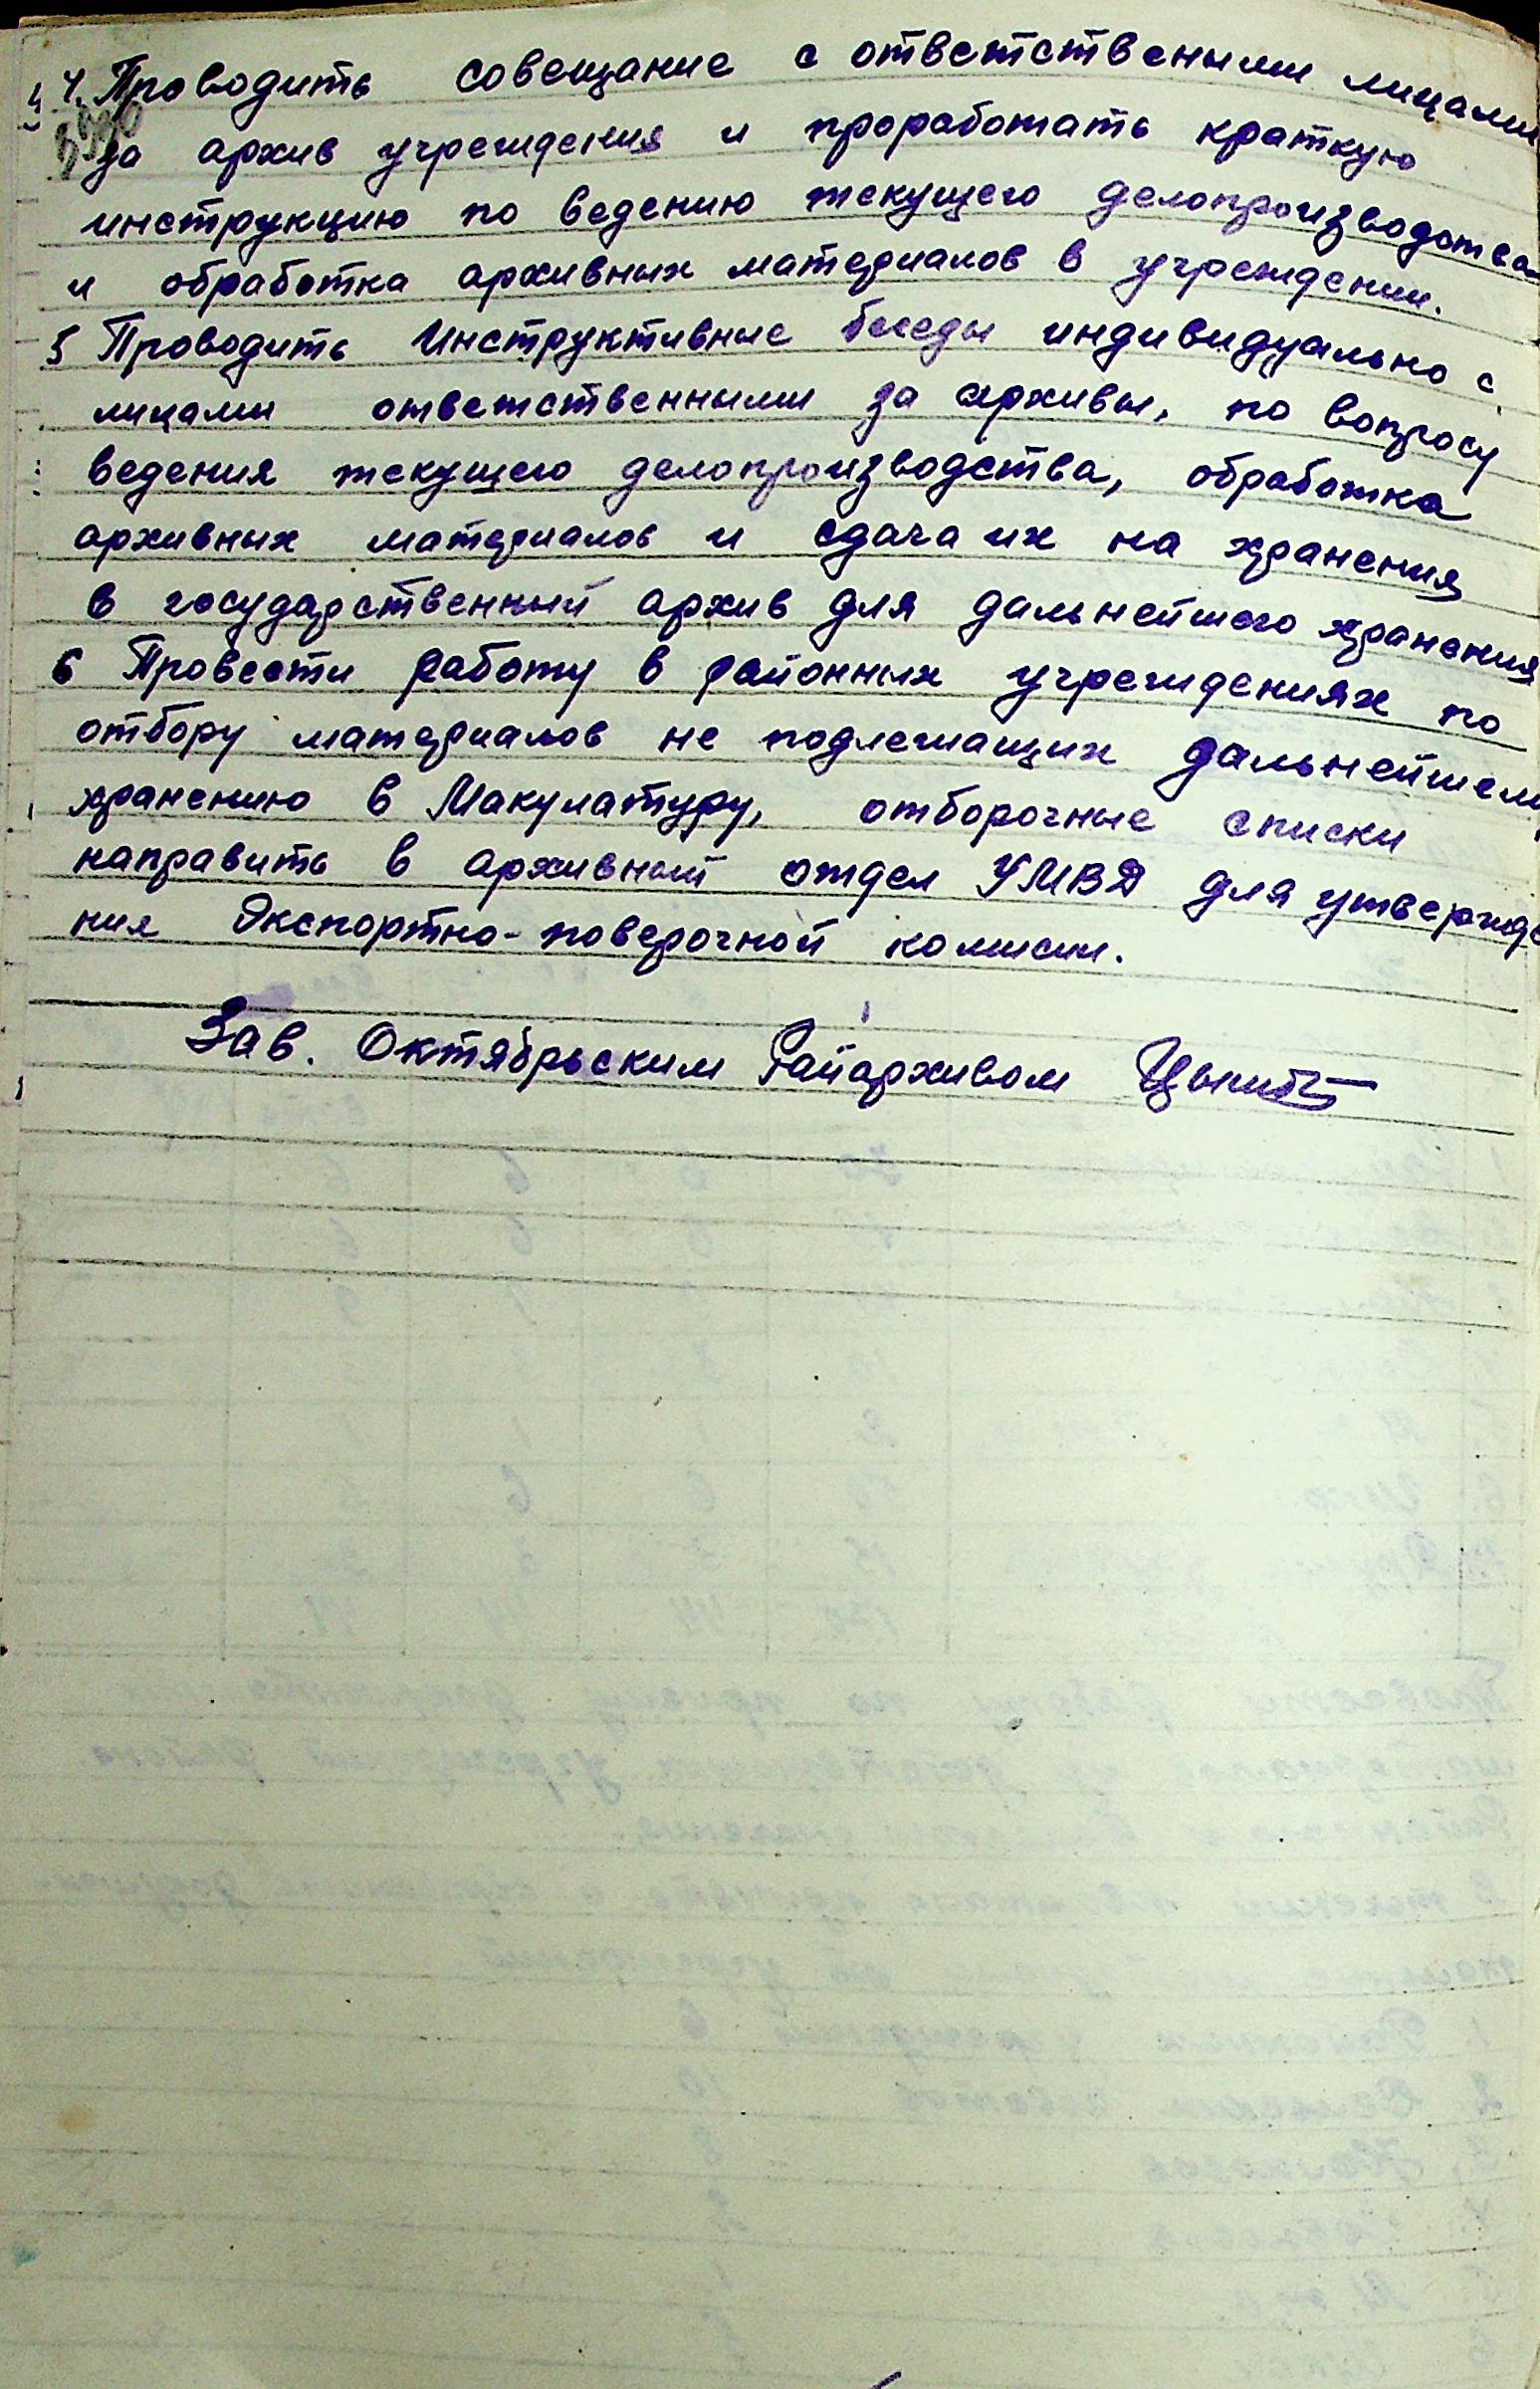 4. Проводить совещание с ответственными лицами
за архив учреждения и проработать краткую
инструкцию по ведению текущего делопроизводства
и обработка архивных материалов в учреждении.
5 Проводить Инструктивные беседы индивидуально с
лицами ответственными за архивы, по вопросу
ведения текущего делопроизводства, обработка
архивных материалов и сдача их на хранения
в государственный архив для дальнейшего хранения
6 Провести работу в районных учреждениях по
отбору материалов не подлежащих дальнейшем
хранению в Макулатуру, отборочные списки
направить в архивный отдел УМВД для утвержде
ния Экспортно-поверочной комисии.
Зав. Октябрьским Райархивом